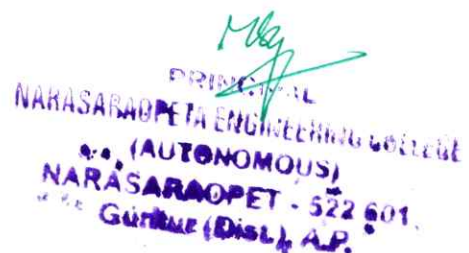 PRINCIPAL
NARASARAOPETA ENGINEERING COLLEGE
(AUTONOMOUS)
NARASARAOPET - 522 601.
Guntur (Dist.), A.P.